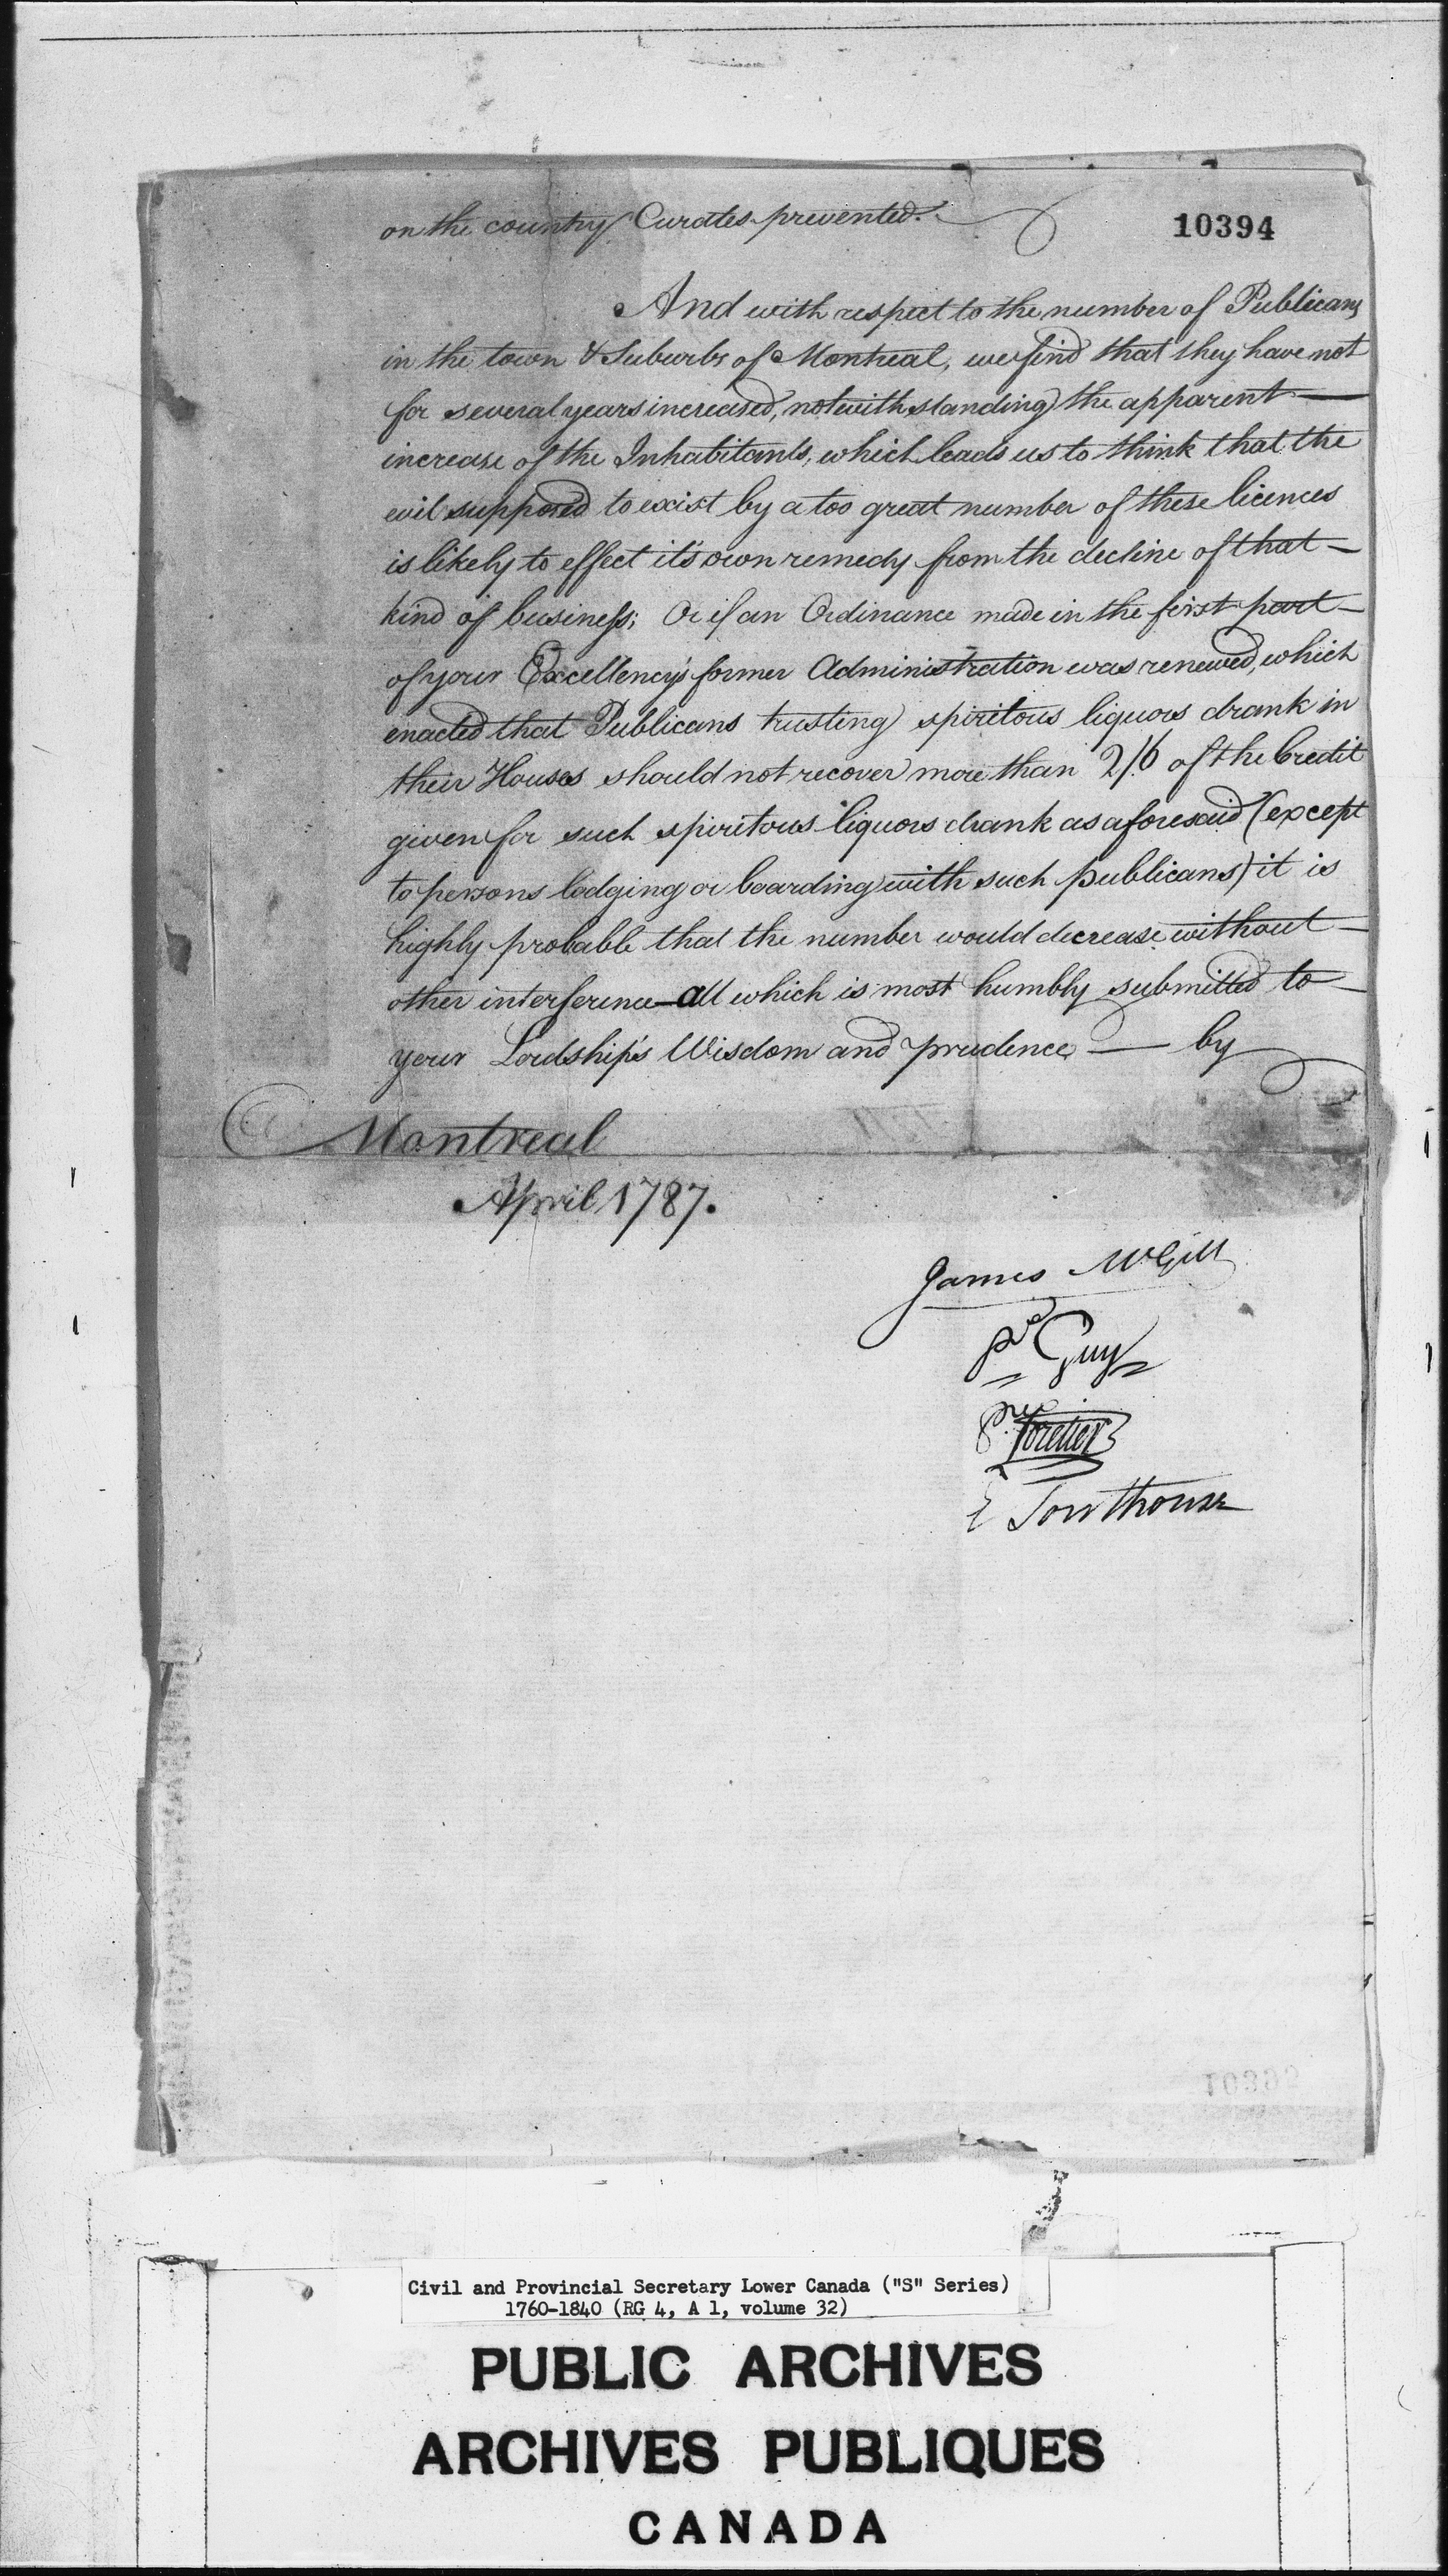 on the country Curates prevented.
10394
And with respect to the number of Publicans
in the town & Suburbs of Montreal, we find that they have not
for several years increased, notwithstanding the apparent —
increase of the Inhabitants, which leads us to think that the
evil supposed to exist by a too great number of these licences
is likely to effect it's own remedy from the decline of that —
kind of business; Or if an Ordinance made in the first part —
of your Excellency's former Administration was renewed, which
enacted that Publicans trusting spiritous liquors drank in
their Houses should not recover more than 2/6 of the Credit
given for such spiritous liquors drank as aforesaid (except
to persons lodging or boarding with such publicans) it is
highly probable that the number would decrease without —
other interference — all which is most humbly submitted to —
your Lordship's Wisdom and prudence — by
Montreal
April 1787.
James McGill
Pre Guy
Pre Foretier
E Southouse
10392
Civil and Provincial Secretary Lower Canada ("S" Series)
1760-1840 (RG 4, A 1, volume 32)
PUBLIC ARCHIVES
ARCHIVES PUBLIQUES
CANADA